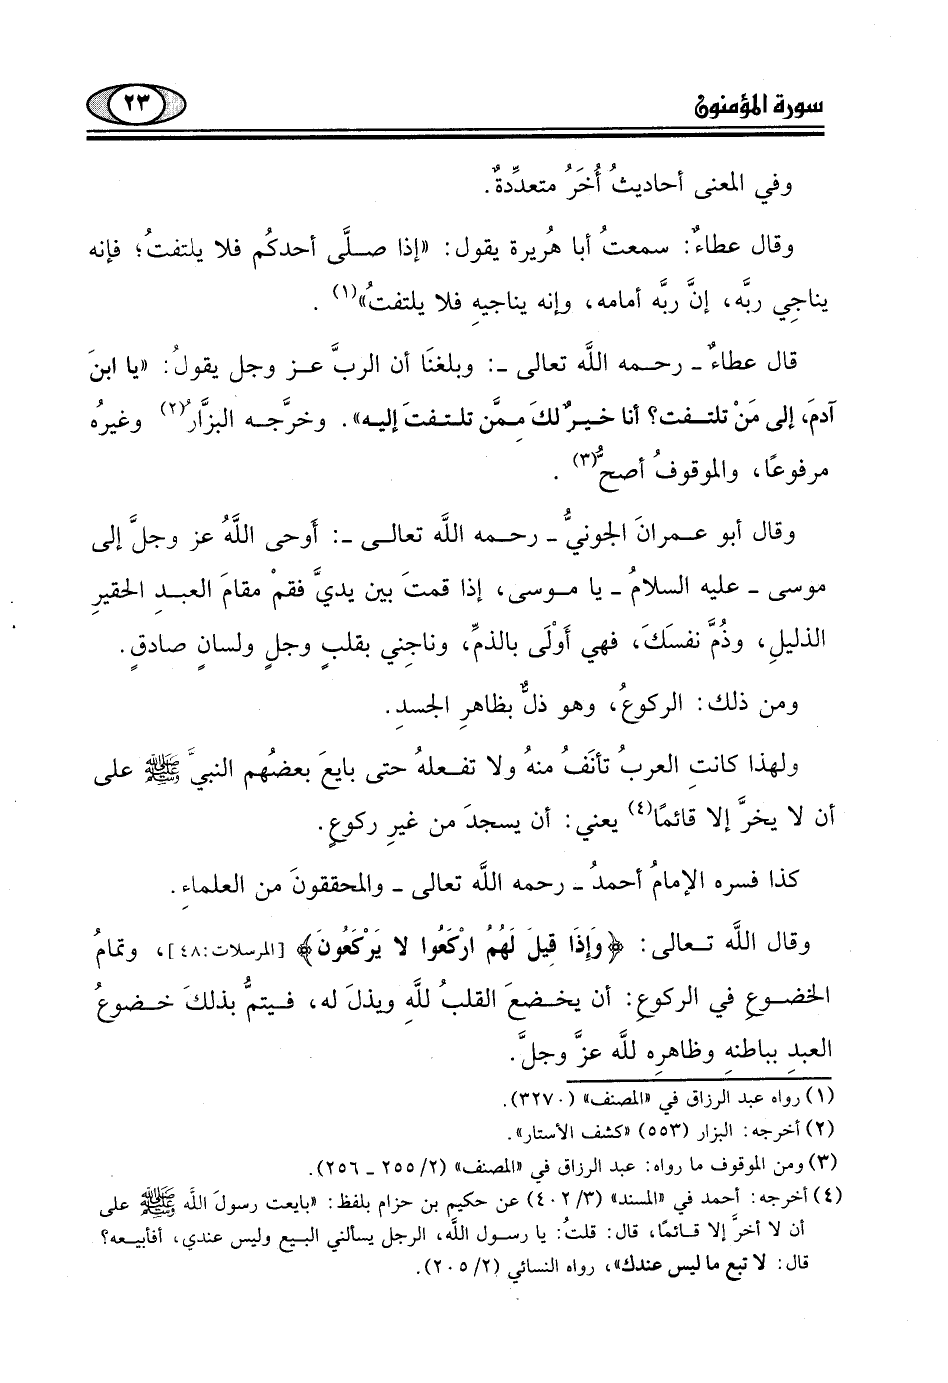 سورة المؤمنون
٢٣
وفي المعنى أحاديثُ أُخَرُ متعدِّدةٌ.
وقال عطاءٌ: سمعتُ أبا هُريرة يقول: «إذا صلَّى أحدكُم فلا يلتفتُ؛ فإنه
يناجِي ربَّه، إنَّ ربَّه أمامه، وإنه يناجيهِ فلا يلتفتُ»(١).
قال عطاءٌ ـ رحمه اللَّه تعالى ـ: وبلغنَا أن الربَّ عز وجل يقولُ: «يا ابنَ
آدمَ، إلى مَنْ تلتفت؟ أنا خيرٌ لكَ ممَّن تلتفت إليه». وخرَّجه البزَّارُ(٢) وغيرُه
مرفوعًا، والموقوفُ أصحُّ(٣).
وقال أبو عمرانَ الجونيُّ ـ رحمه اللَّه تعالى ـ: أَوحى اللَّهُ عز وجلَّ إلى
موسى ـ عليه السلامُ ـ يا موسى، إذا قمتَ بين يديَّ فقمْ مقامَ العبدِ الحقيرِ
الذليلِ، وذُمَّ نفسَكَ، فهي أَوْلَى بالذمِّ، وناجنِي بقلبٍ وجلٍ ولسانٍ صادقٍ.
ومن ذلك: الركوعُ، وهو ذلٌّ بظاهرِ الجسدِ.
ولهذا كانتِ العربُ تأنَفُ منهُ ولا تفعلهُ حتى بايعَ بعضُهم النبيَّ ﷺ على
أن لا يخرَّ إلا قائمًا(٤) يعني: أن يسجدَ من غيرِ ركوعٍ.
كذا فسره الإمامُ أحمدُ ـ رحمه اللَّه تعالى ـ والمحققونَ من العلماءِ.
وقال اللَّه تعالى: ﴿وَإِذَا قِيلَ لَهُمُ ارْكَعُوا لا يَرْكَعُونَ﴾ [المرسلات:٤٨]، وتمامُ
الخضوعِ في الركوعِ: أن يخضعَ القلبُ للَّهِ ويذلَ له، فيتمُّ بذلكَ خضوعُ
العبدِ بباطنهِ وظاهرِه للَّه عزَّ وجلَّ.
(١) رواه عبد الرزاق في «المصنف» (٣٢٧٠).
(٢) أخرجه: البزار (٥٥٣) «كشف الأستار».
(٣) ومن الموقوف ما رواه: عبد الرزاق في «المصنف» (٢/ ٢٥٥ ـ ٢٥٦).
(٤) أخرجه: أحمد في «المسند» (٣/ ٤٠٢) عن حكيم بن حزام بلفظ: «بايعت رسولَ اللَّه ﷺ على
أن لا أخرَّ إلا قائمًا، قال: قلتُ: يا رسول اللَّه، الرجل يسألني البيع وليس عندي، أفأبيعه؟
قال: لا تبع ما ليس عندك»، رواه النسائي (٢/ ٢٠٥).